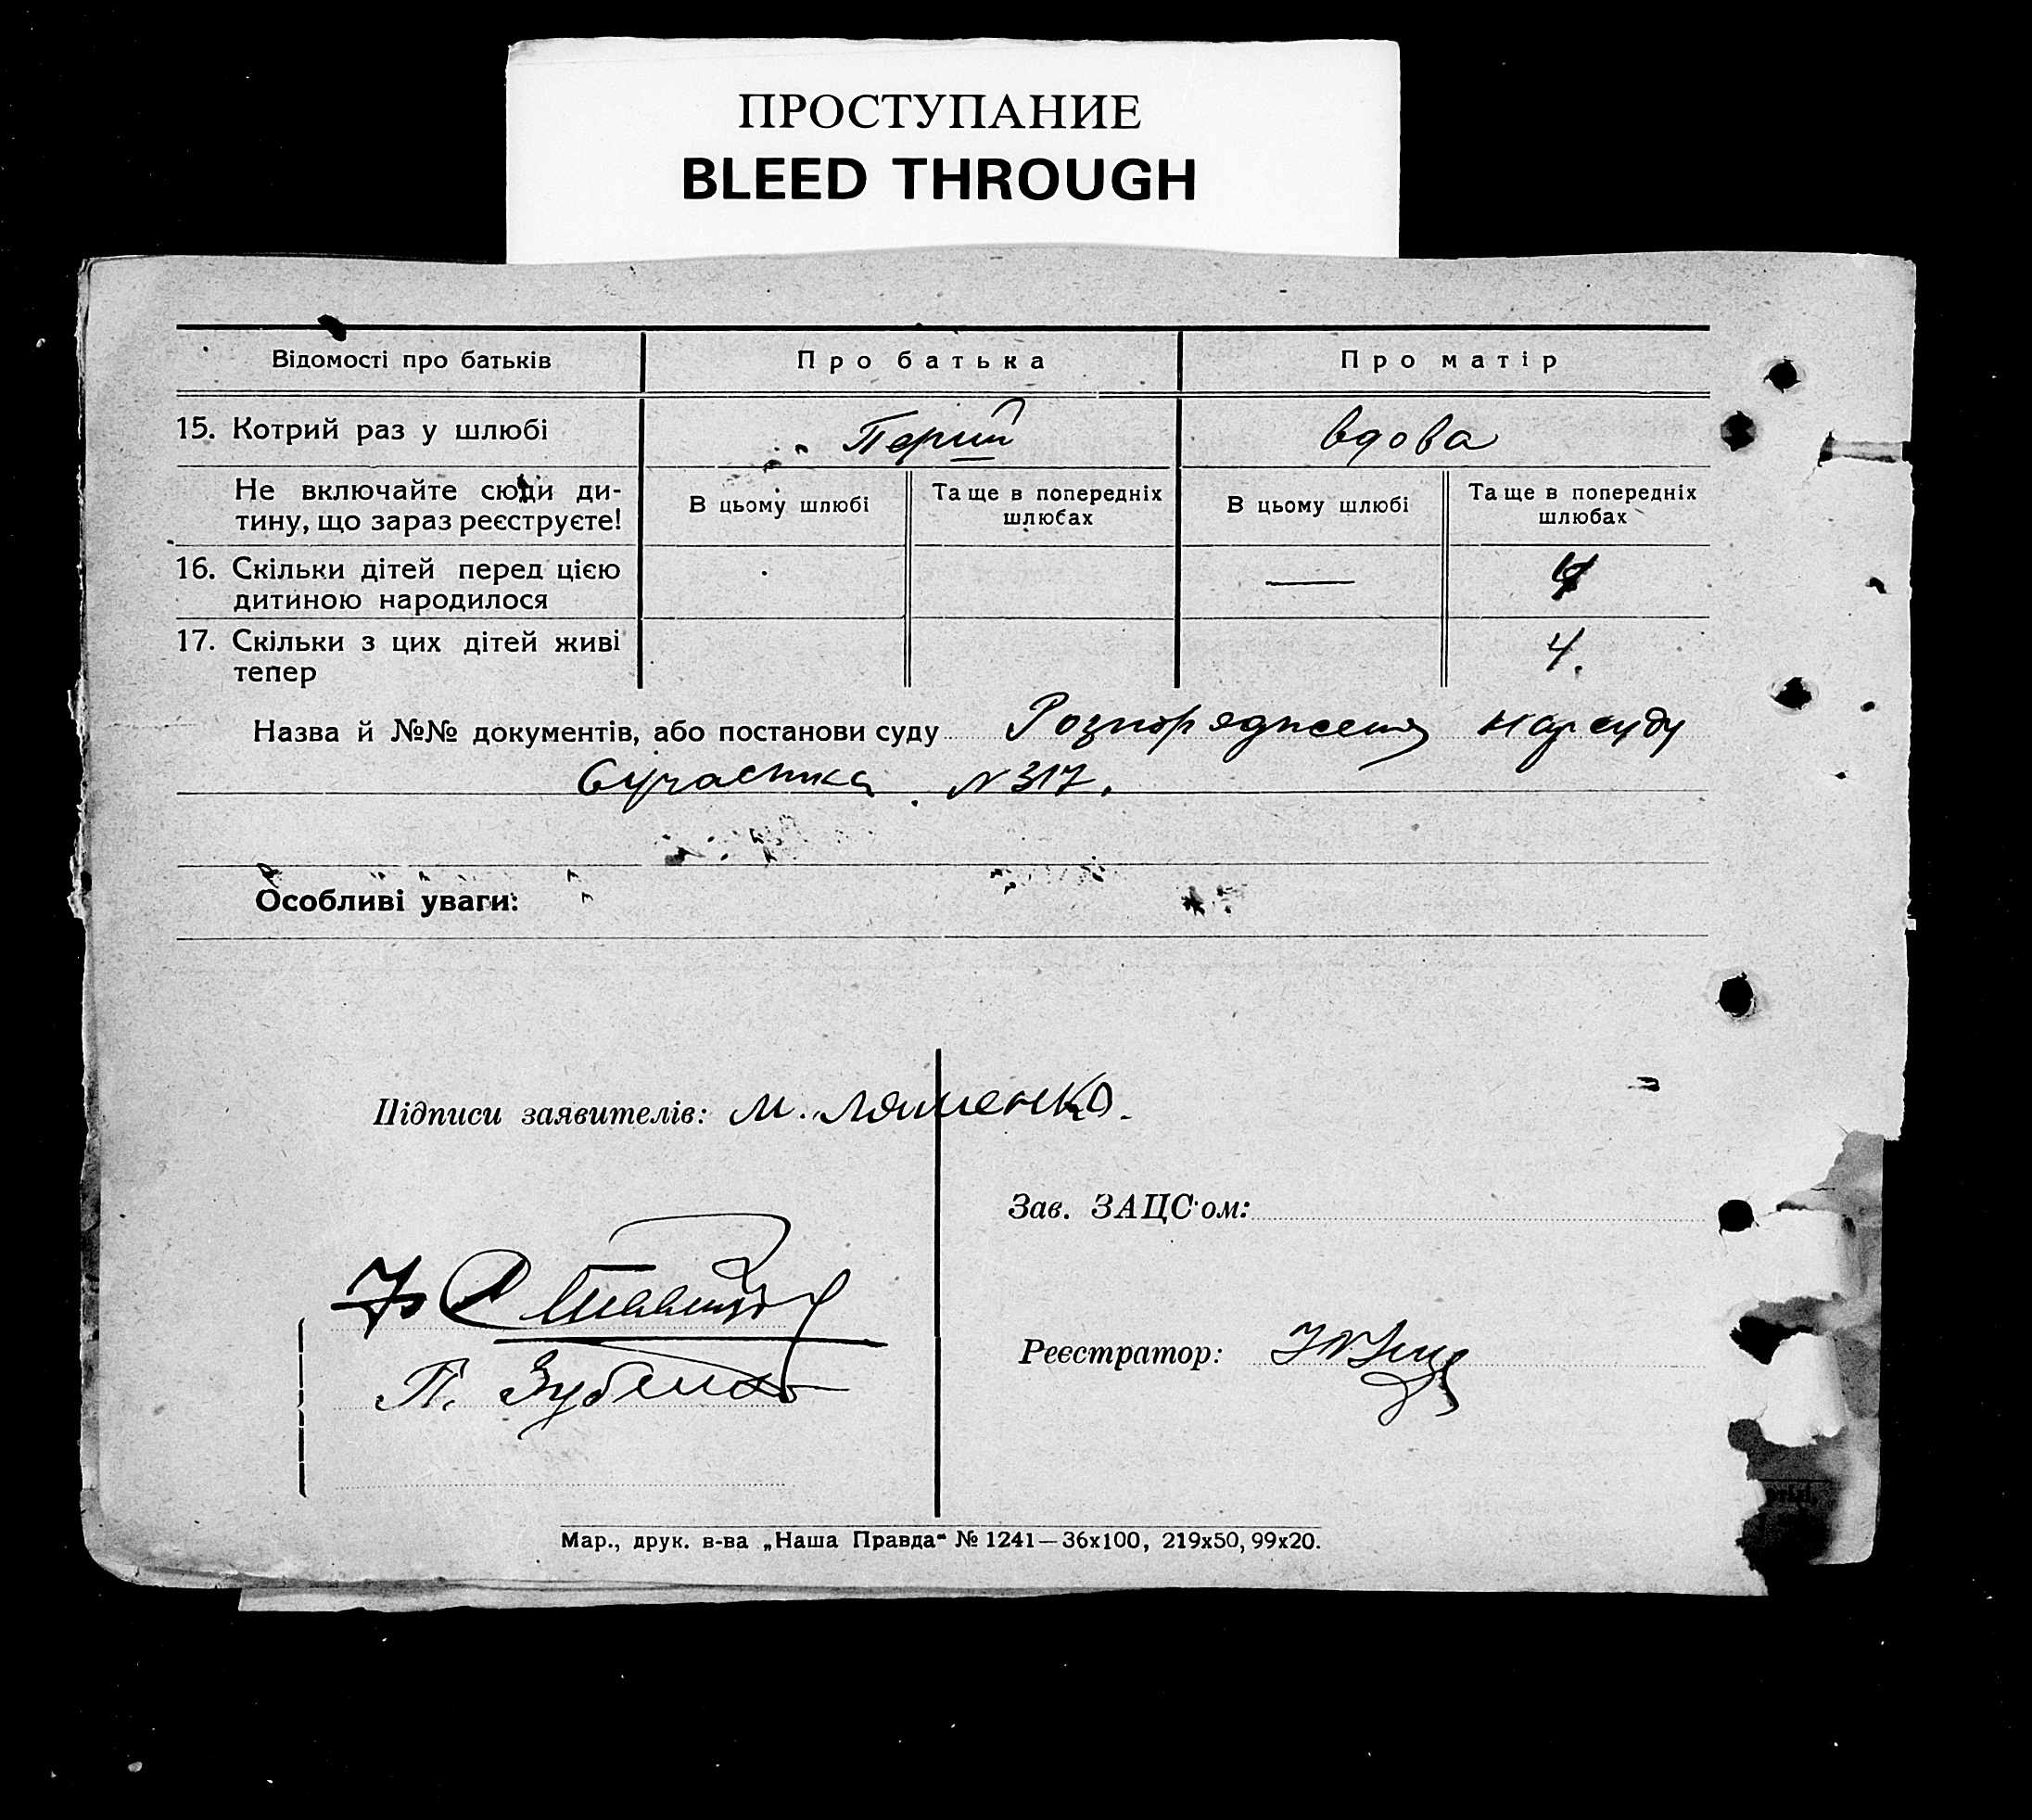 ПРОСТУПАНИЕ
BLEED THROUGH
Відомості про батьків Про батька Про матір
15. Котрий раз у шлюбі Перший вдова
Не включайте сюди ди-
тину, що зараз реєструєте!
В цьому шлюбі Та ще в попередніх шлюбах В цьому шлюбі Та ще в попередніх шлюбах
16. Скільки дітей перед цією
дитиною народилося —
17. Скільки з цих дітей живі
тепер 4.
Назва й №№ документів, або постанови суду Розпорядження нарсуду
6 участка N 317.
Особливі уваги:
Підписи заявителів: М. Ляшенко.
Зав. ЗАЦС'ом:
Реєстратор:
П. Зубенко
Мар., друк. в-ва „Наша Правда" № 1241—36x100, 219x50, 99x20.